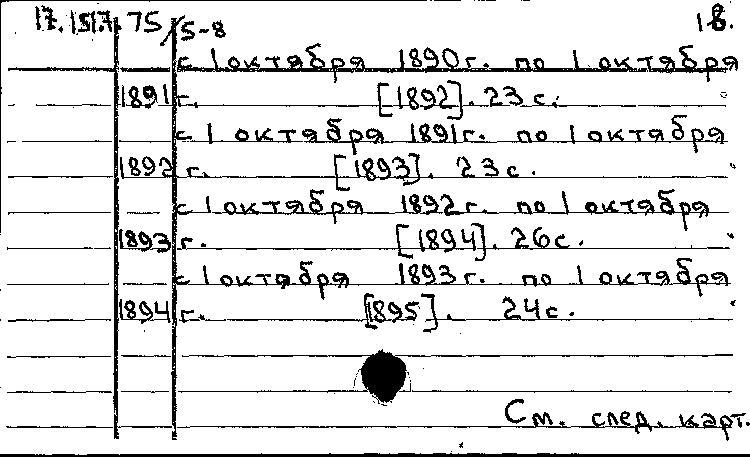 17.151.7.75/5-8 18.
с 1 октября 1890 г. по 1 октября
1891 г. [1892]. 23 с.
с 1 октября 1891 г. по 1 октября
1892 г. [1893]. 23 с.
с 1 октября 1892 г. по 1 октября
1893 г. [1894]. 26 с.
с 1 октября 1893 г. по 1 октября
1894 г. [1895]. 24 с.
См. след. карт.